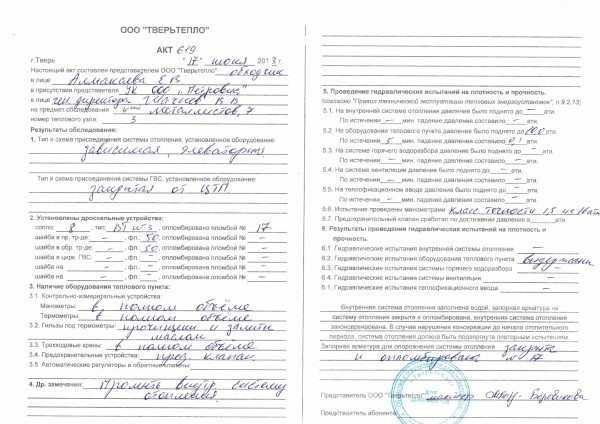 ООО "ТВЕРЬТЕПЛО"
АКТ 619
г.Тверь "17" июня 2013 г.
Настоящий акт составлен представителем ООО "Тверьтепло"
в лице Е В
в присутствии представителя УК ООО "Петровик"
в лице ген. директора В. В
на предмет обследования Металлистов, 7
номер теплового узла 3
Результаты обследования:
1. Тип и схема присоединения системы отопления, установленное оборудование:
зависимая, элеваторная
Тип и схема присоединения системы ГВС, установленное оборудование:
закрытая от ЦТП
2. Установлены дроссельные устройства:
сопло 8, тип ВТИ №3, опломбировано пломбой № 17
шайба в пр. тр-де: –, фл. 50, опломбирована пломбой № –
шайба в обр. тр-де: –, фл. 50, опломбирована пломбой № –
шайба в цирк. ГВС: –, фл. –, опломбирована пломбой № –
шайба на –, фл. –, опломбирована пломбой № –
шайба на –, фл. –, опломбирована пломбой № –
3. Наличие оборудования теплового пункта:
3.1. Контрольно-измерительные устройства:
Манометры: в полном объёме
Термометры: в полном объёме
3.2. Гильзы под термометры: прочищены и залиты
маслом
3.3. Трехходовые краны: в полном объёме
3.4. Предохранительные устройства: пред. клапан
3.5. Автоматические регуляторы и обратные клапаны:
4. Др. замечания: Промыть внутр. систему
отопления.
5. Проведение гидравлических испытаний на плотность и прочность.
(согласно "Правил технической эксплуатации тепловых энергоустановок", п.9.2.13)
5.1. На внутренней системе отопления давление было поднято до – ати.
По истечении – мин. падение давления составило – ати.
5.2. На оборудование теплового пункта давление было поднято до 10,0 ати.
По истечении 5 мин. падение давления составило 0,1 ати.
5.3. На систему горячего водоразбора давление было поднято до – ати.
По истечении – мин. падение давления составило – ати.
5.4. На система вентиляции давление было поднято до – ати.
По истечении – мин. падение давления составило – ати.
5.5. На теплофикационном вводе давление было поднято до – ати.
По истечении – мин. падение давления составило – ати.
5.6. Испытание проведены манометрами класс точности 1,5 на 16 ати
5.7. Предохранительный клапан сработал по достижении давления в – ати.
6. Результаты проведение гидравлических испытаний на плотность и
прочность.
6.1. Гидравлические испытания внутренней системы отопления: –
6.2. Гидравлические испытания оборудования теплового пункта выдержаны
6.3. Гидравлические испытания системы горячего водоразбора –
6.4. Гидравлические испытания системы вентиляции: –
6.5. Гидравлические испытания теплофикационного ввода –
Внутренняя система отопления заполнена водой, запорная арматура на
систему отопления закрыта и опломбирована, внутренняя система отопления
законсервирована. В случае нарушения консервации до начала отопительного
периода, система отопления должна быть подвергнута повторным испытаниям.
Запорная арматура для опорожнения системы отопления закрыта
и опломбирована № 17
Представитель ООО "Тверьтепло" мастер
Представитель абонента: